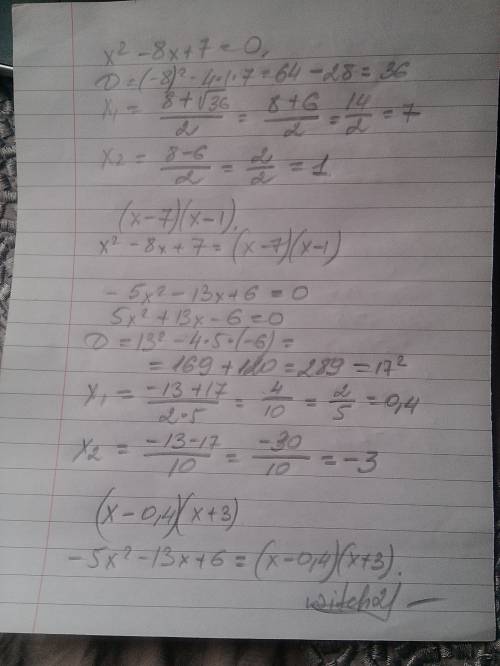 x² - 8x + 7 = 0,
D = (-8)² - 4·1·7 = 64 - 28 = 36
x₁ = (8 + √36)/2 = (8+6)/2 = 14/2 = 7
x₂ = (8-6)/2 = 2/2 = 1
(x-7)(x-1),
x² - 8x + 7 = (x-7)(x-1)
- 5x² - 13x + 6 = 0
5x² + 13x - 6 = 0
D = 13² - 4·5·(-6) =
= 169 + 120 = 289 = 17²
x₁ = (-13+17)/(2·5) = 4/10 = 2/5 = 0,4
x₂ = (-13-17)/10 = -30/10 = -3
(x - 0,4)(x+3)
-5x² - 13x + 6 = (x-0,4)(x+3).